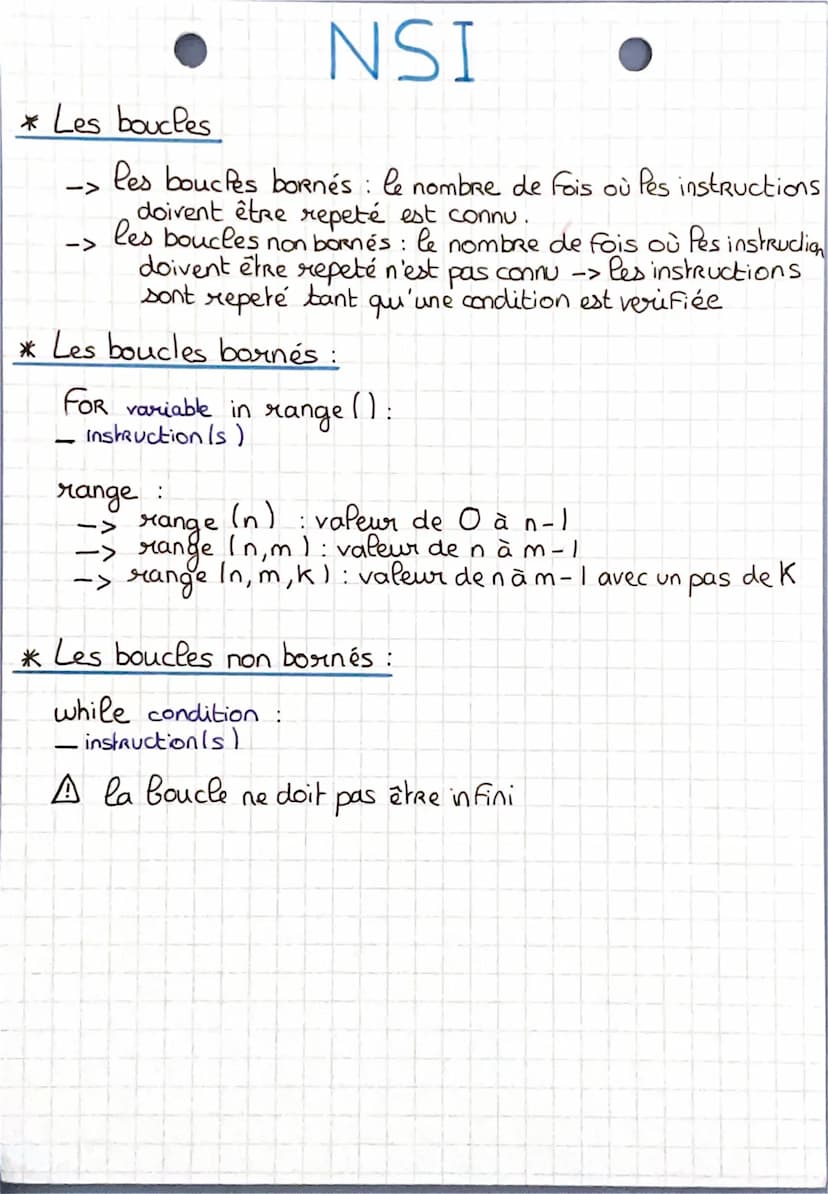 NSI
* Les boucles
-> les boucles bornés : le nombre de fois où les instructions
doivent être repeté est connu.
-> les boucles non bornés : le nombre de fois où les instruction
doivent être repeté n'est pas connu -> les instructions
sont repeté tant qu'une condition est verifiée
* Les boucles bornés :
For variable in range () :
– instruction(s)
range :
-> range (n) : valeur de 0 à n-1
-> range (n,m) : valeur de n à m-1
-> range (n,m,k) : valeur de n à m-1 avec un pas de K
* Les boucles non bornés :
while condition :
– instruction(s)
⚠ la boucle ne doit pas être infini